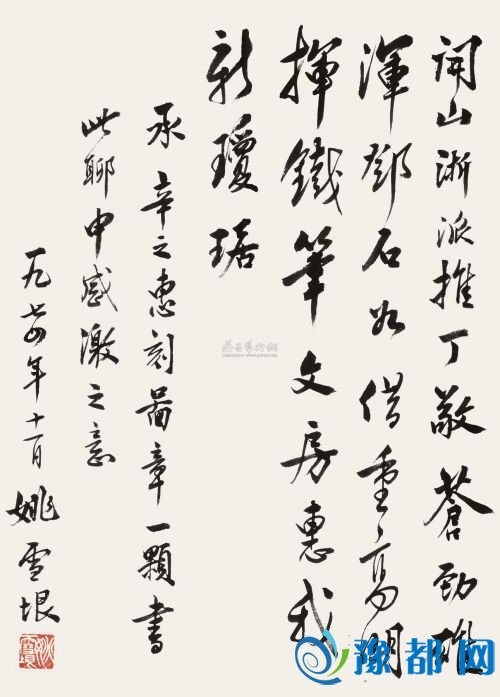 開山浙派推丁敬蒼勁雄
渾鄧石如借重高明
揮鐵筆文房惠我
新瓊琚
承辛之惠刻圖章一顆書
此聊申感激之意
一九七四年十一月姚雪垠
豫都网